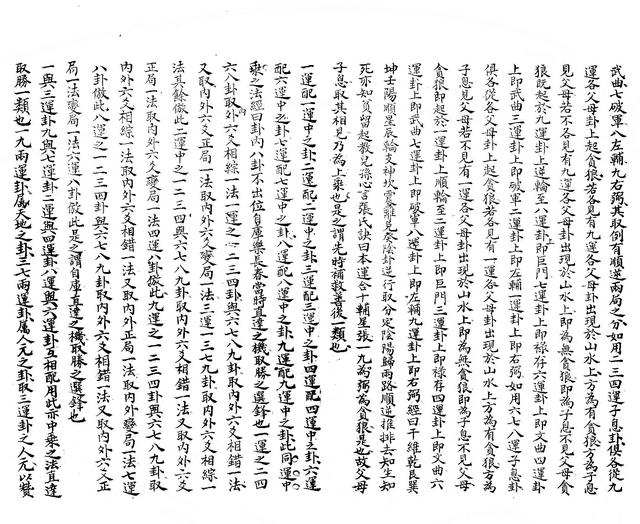 武曲七破軍八左輔九右弼其取倒有順逆兩局之分如用一二三四運子息卦俱各從九
運各父母卦上起貪狼若各見有九運各父母卦出現於山水上方為有貪狼方為子息
見父母若不各見有九運各父母卦出現於山水上即為無貪狼即為子息不見父母貪
狼既起於九運卦上逆輪至八運卦即巨門七運卦上即祿存六運卦上即文曲四運卦
上即武曲三運卦上即破軍二運卦上即左輔一運卦上即右弼如用六七八運子息卦
俱各從各父母卦上起貪狼若各見有一運各父母卦出現於山水上方為有貪狼方為
子息見父母若不見有一運各父母卦出現於山水上即為無貪狼即為子息不見父母
貪狼即起於一運卦上順輪至二運卦上即巨門三運卦上即祿存四運卦上即文曲六
運卦上即武曲七運卦上即破軍八運卦上即左輔九運卦上即右弼經曰干維乾艮巽
坤壬陽順星辰輪支神坎震離兌癸陰卦逆行取分定陰陽歸兩路順逆推排去知生知
死亦知貧留起教兒孫心言張大訣曰本運合十輔星張一九為弼為貪狼是也故父母
子息取其相見乃為上乘也是之謂先時補救善後一類也
一運配一運中之卦二運配二運中之卦三運配三運中之卦四運配四運中之卦六運
配六運中之卦七運配七運中之卦八運配八運中之卦九運配九運中之卦此同運中
乘之法經曰卦內八卦不出位自庫樂長春當時直達之機取勝之選鋒也一運之二四
六八卦取外內六爻相綜一法一運之一二三四卦與六七八九卦取內外六爻相錯一法
又取內外六爻正局一法又取內外六爻變局一法三運一三七九卦取內外六爻相綜一
法其餘倣此二運中之一二三四與六七八九卦取內外六爻相錯一法又取內外六爻
正局一法變局一法取內外六爻變局一法四運八卦倣此九運之一二三四卦與六七八九卦取
內外六爻相綜一法取內外六爻相錯一法又取內外正局一法內外變局一法七運
八卦倣此八運之一二三四卦與六七八九卦取內外六爻相錯一法又取內外六爻正
局一法變局一法六運八卦倣此是之謂自庫直達之機取勝之選鋒也
一與三運卦九與七運卦二運與四運卦八運與六運卦互相配用此亦中乘之法直達
取勝一類也一九兩運卦屬天地之卦三七兩運卦屬人元之卦取三運卦之人元以贊